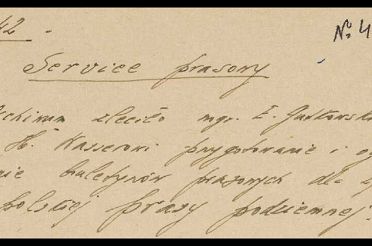 42 .
№ 4
Service prasowy
zleciło mgr. E. Gutkowski
H. Wasserowi przygotowanie i
nie biuletynów prasowych dla
polskiej prasy podziemnej.